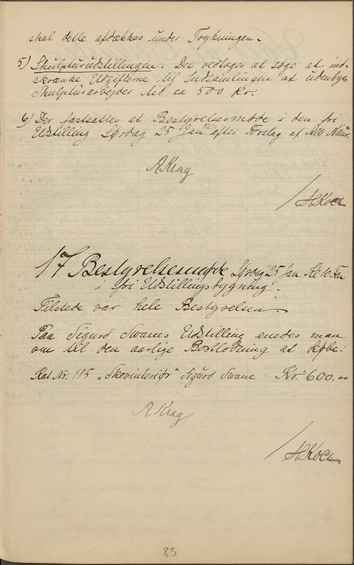 skal dette aftrækkes under Trykningen.
5) Skulpturudstillingen. Der vedtages at søge at ind-
skrænke Udgifterne til Indsamlingen af udenbys
Skulpturarbejder til ca 500 Kr.
6) Der fastsættes et Bestyrelsesmøde i den fri
Udstilling Lørdag 25 Jan efter Forslag af
AKrag
17 Bestyrelsesmøde Lørdag 25 Jan Kl
i fri Udstillingsbygning.
Tilstede var hele Bestyrelsen.
Paa Sigurd Swanes Udstilling enedes man
om til den aarlige Bortlodning at købe:
Kat Nr. 115 "Skovinteriør" Sigurd Swane Kr. 600.
AKrag
85